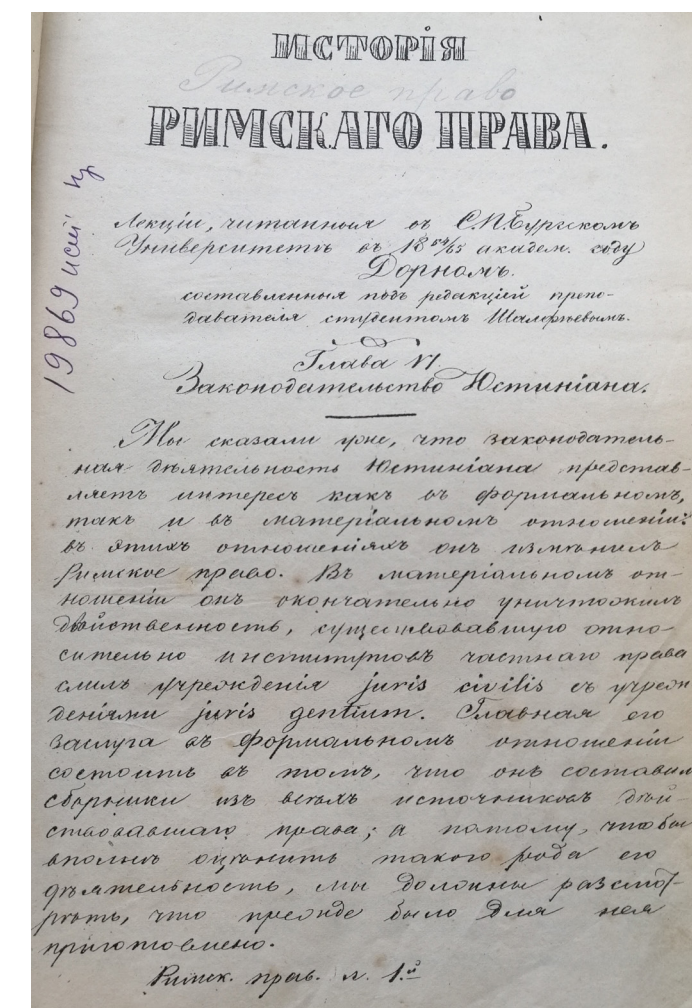 ИСТОРІЯ
Римское право
РИМСКАГО ПРАВА.
Лекціи, читанныя въ С.П.Бургскомъ
Университетѣ въ 18 64/65 академ. году
Дорномъ.
составленныя подъ редакціей препо-
давателя студентомъ
Глава VI.
Законодательство Юстиніана.
Мы сказали уже, что законодатель-
ная дѣятельность Юстиніана представ-
ляетъ интересъ какъ въ формальномъ,
такъ и въ матеріальномъ отношеніи:
въ этихъ отношеніяхъ онъ измѣнилъ
Римское право. Въ матеріальномъ от-
ношеніи онъ окончательно уничтожилъ
двойственность, существовавшую отно-
сительно институтовъ частнаго права
слилъ учрежденія juris civilis съ учреж
деніями juris gentium. Главная его
заслуга въ формальномъ отношеніи
состоитъ въ томъ, что онъ составил
сборники изъ всѣхъ источниковъ дѣй-
ствовавшаго права; а потому, чтобы
вполнѣ оцѣнить такого рода его
дѣятельность, мы должны разсмот-
рѣть, что прежде было для нея
приготовлено.
Римск. прав. л. 1.й
19869